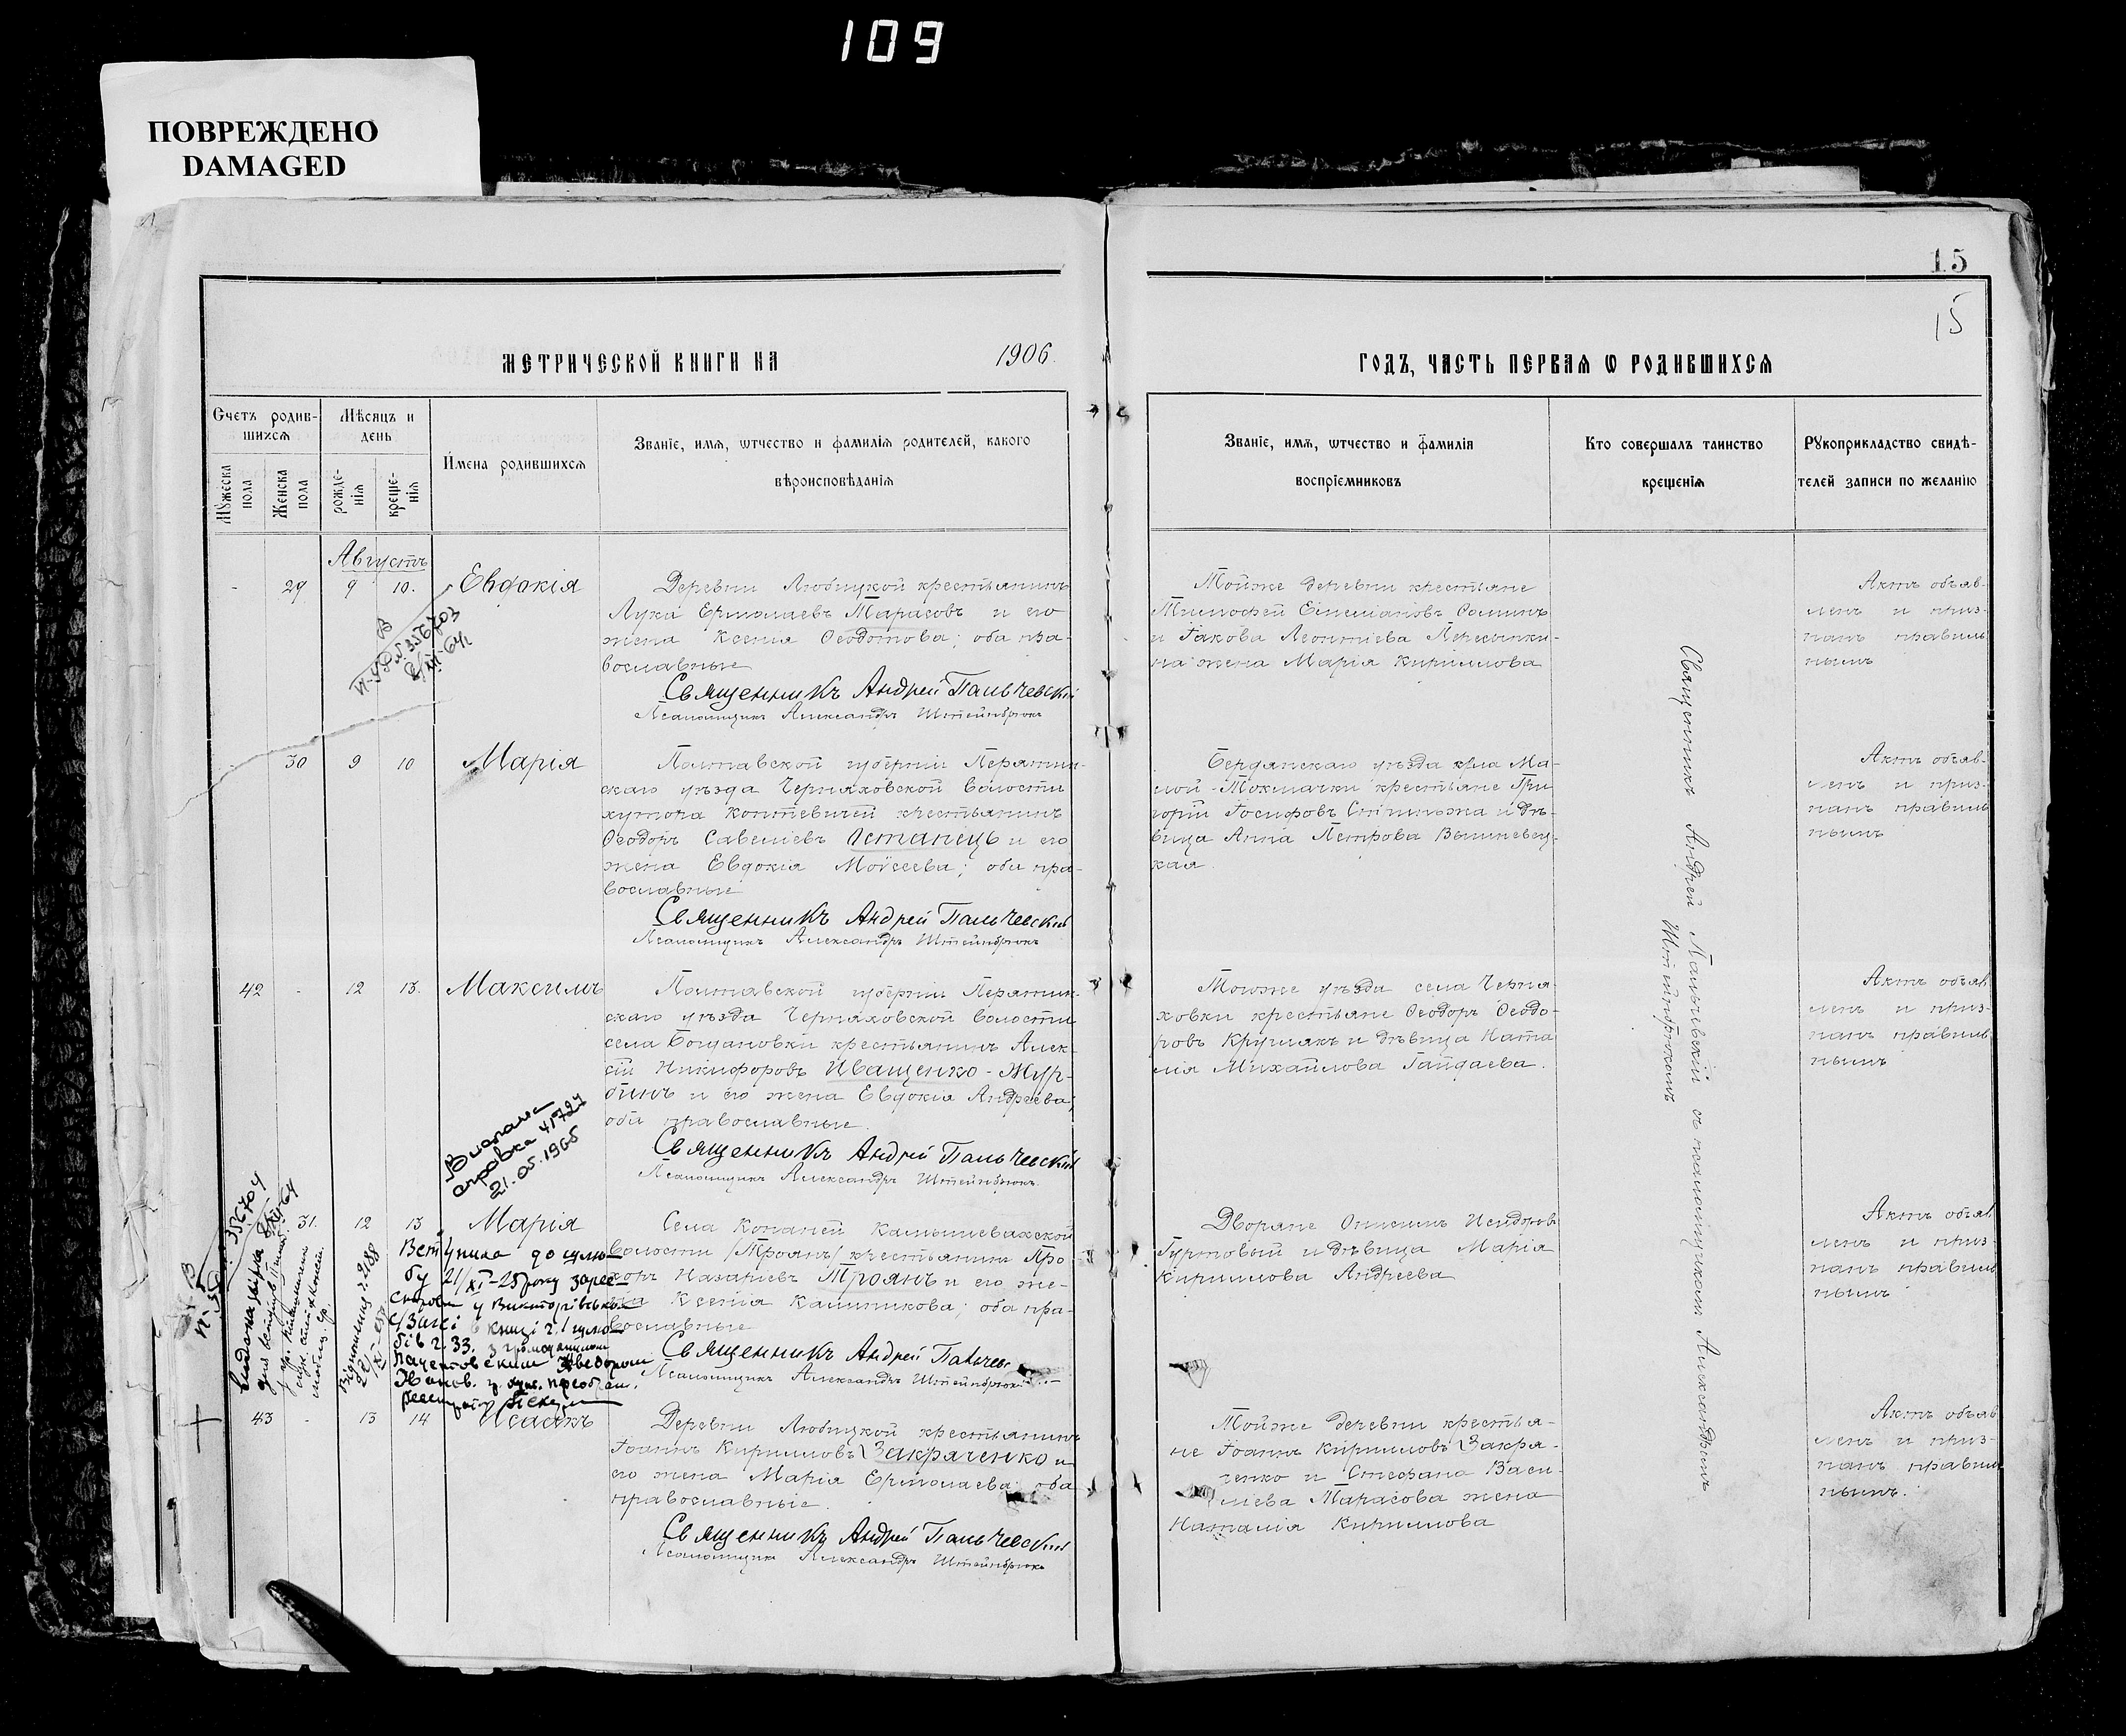 109
ПОВРЕЖДЕНО
DAMAGED
15
15
МЕТРИЧЕСКОЙ КНИГИ НА 1906.
ГОДЪ, ЧАСТЬ ПЕРВАЯ Ѡ РОДИВШИХСЯ
Счетъ родив-
шихся
Мѣсяцъ и
день
Мꙋжеска
пола
Женска
пола
рожде-
нія
креще-
нія
Имена родившихся
Званіе, имя, ѿтчество и фамилія родителей, какого
вѣроисповѣданія
Званіе, имя, ѿтчество и фамилія
воспріемниковъ
Кто совершалъ таинство
крещенія
Рꙋкоприкладство свидѣ-
телей записи по желанію
Августъ
- 29 9 10. Евдокія
Деревни Любицкой крестьянинъ
Лука Ермолаевъ Тарасовъ и его
жена Ксенія Ѳеодотова; оба пра-
вославные
Священникъ Андрей Пальчевскій
Псаломщикъ Александръ Штейнбрюкъ
Тойже деревни крестьяне
Тимофей Емельяновъ Соминъ
и Іакова Леонтіева Пересыпки-
на жена Марія Кириллова
Актъ объяв-
ленъ и приз-
нанъ правиль
нымъ
30 9 10 Марія
Полтавской губерніи Пирятин-
скаго уѣзда Черняховской волости
хутора Коптевичей крестьянинъ
Ѳеодоръ Савеліевъ Останецъ и его
жена Евдокія Моѵсеева; оба пра-
вославные
Священникъ Андрей Пальчевскій
Псаломщикъ Александръ Штейнбрюкъ
Бердянскаго уѣзда села Ма-
лой-Токмачки крестьяне Гри
горій Іосифовъ и дѣ-
вица Анна Петрова Вышневец-
кая.
Актъ объяв-
ленъ и приз-
нанъ правиль
нымъ
42 - 12 13. Максимъ
Полтавской губерніи Пирятин-
скаго уѣзда Черняховской волости
села Богдановки крестьянинъ Алек-
сій Никифоровъ Иващенко-Жур-
бинъ и его жена Евдокія Андреева;
оба православные.
Священникъ Андрей Пальчевскій
Псаломщикъ Александръ Штейнбрюкъ.
Тогоже уѣзда села Черня-
ховки крестьяне Ѳеодоръ Ѳеодо-
ровъ Круглякъ и дѣвица Ната
лія Михайлова Гайдаева.
Актъ объяв
ленъ и приз-
нанъ правиль
нымъ
справка 41727
21.05.1965
31. 12 13 Марія
Села Копаней Камышевахской
волости /Троянъ/ крестьянинъ Про
хоръ Назаріевъ Троянъ и его же-
на Ксенія Калиникова; оба пра-
вославные
Священникъ Андрей Пальчев
Псаломщикъ Александръ Штейнбрюкъ
Дворяне Онисимъ Исидоровъ
Гуртовый и дѣвица Марія
Кириллова Андреева
Актъ объяв
ленъ и приз-
нанъ правиль
нымъ
Вступила до шлю-
бу 21/XI-28 року заре-
43 - 13 14 Исаакъ
Деревни Любицкой крестьянинъ
Іоаннъ Кирилловъ Закряченко и
его жена Марія Ермолаева; оба
православные.
Священникъ Андрей Пальчевскій
Псаломщикъ Александръ Штейнбрюкъ
Тойже деревни крестья-
не Іоаннъ Кирилловъ Закря-
ченко и Стефана Васи-
лiева Тарасова жена
Наталія Кириллова
Актъ объяв
ленъ и приз-
нанъ правиль
нымъ.
Священникъ Андрей Пальчевскій съ псаломщикомъ Александромъ
Штейнбрюкомъ